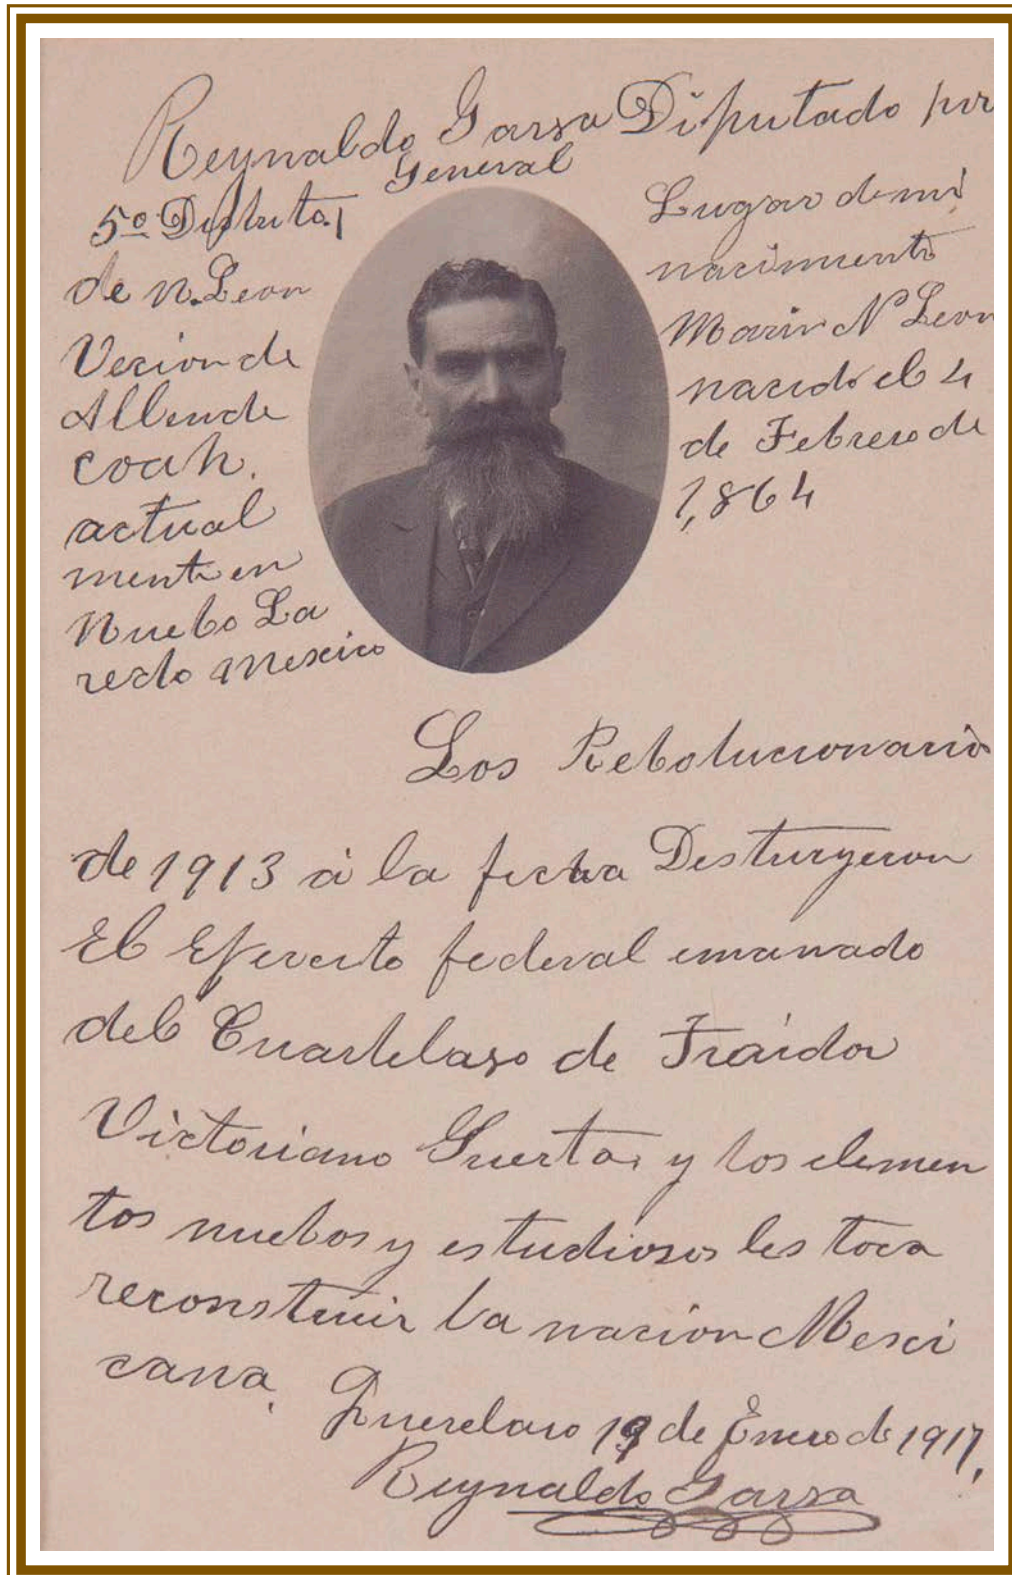 Reynaldo Garza Diputado por
General
5º Distrito
de N. Leon
Vecion de
Allende
coah.
actual
mente en
Nuebo La
redo Mexico
Lugar de mi
nacimiento
Marin N Leon
nacido el 4
de Febrero de
1,864
Los Rebolucionario
de 1913 á la fecha Desturyeron
El Ejercito federal emanado
del Cuartelaso de Traidor
Victoriano Guerta, y los elemen
tos nuebos y estudiosos les toca
reconstruir la nacion Mexi
cana.
Queretaro 19 de Enero de 1917,
Reynaldo Garza